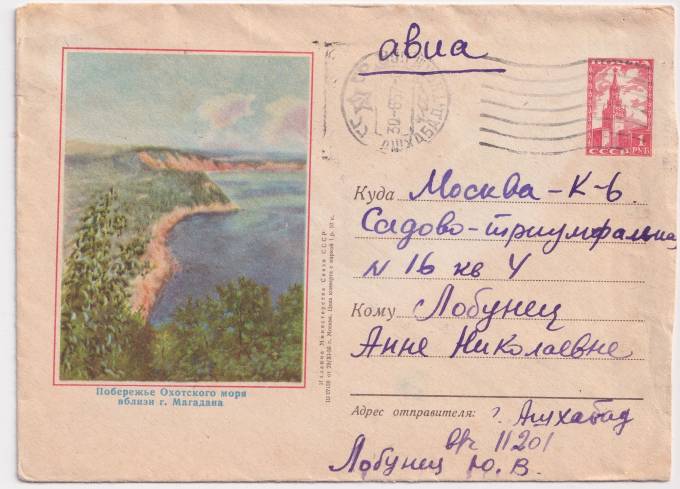 авиа
ПОЧТА
1
РУБ
СССР
АШХАБАД
Куда Москва-К-6
Садово-триумфальная
N 16 кв 4
Кому Лобунец
Анне Николаевне
Адрес отправителя: г. Ашхабад
в/ч 11201
Лобунец Ю. В.
Побережье Охотского моря
вблизи г. Магадана
Издание Министерства Связи СССР